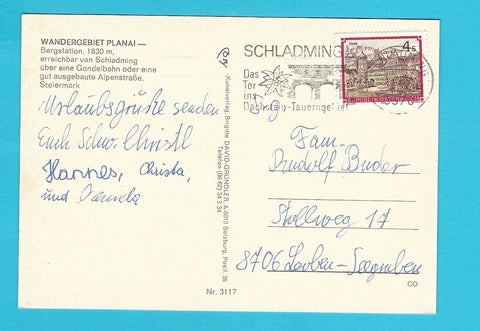 WANDERGEBIET PLANAI —
Bergstation, 1830 m,
erreichbar von Schladming
über eine Gondelbahn oder eine
gut ausgebaute Alpenstraße.
Steiermark
Urlaubsgrüße senden
Euch Schw. Christl
Hannes, Christa,
und Daniela
Kunstverlag Brigitte DAVID-GRÜNDLER, A-5013 Salzburg, Postf. 35
Telefon: (06 62) 34 3 34
Nr. 3117
SCHLADMING
Das
Tor
ins
Dachstein-Tauerngebiet
4 S
REPUBLIK ÖSTERREICH
Fam.
Rudolf Buder
Stollweg 17
8706 Leoben-Seegraben
CO